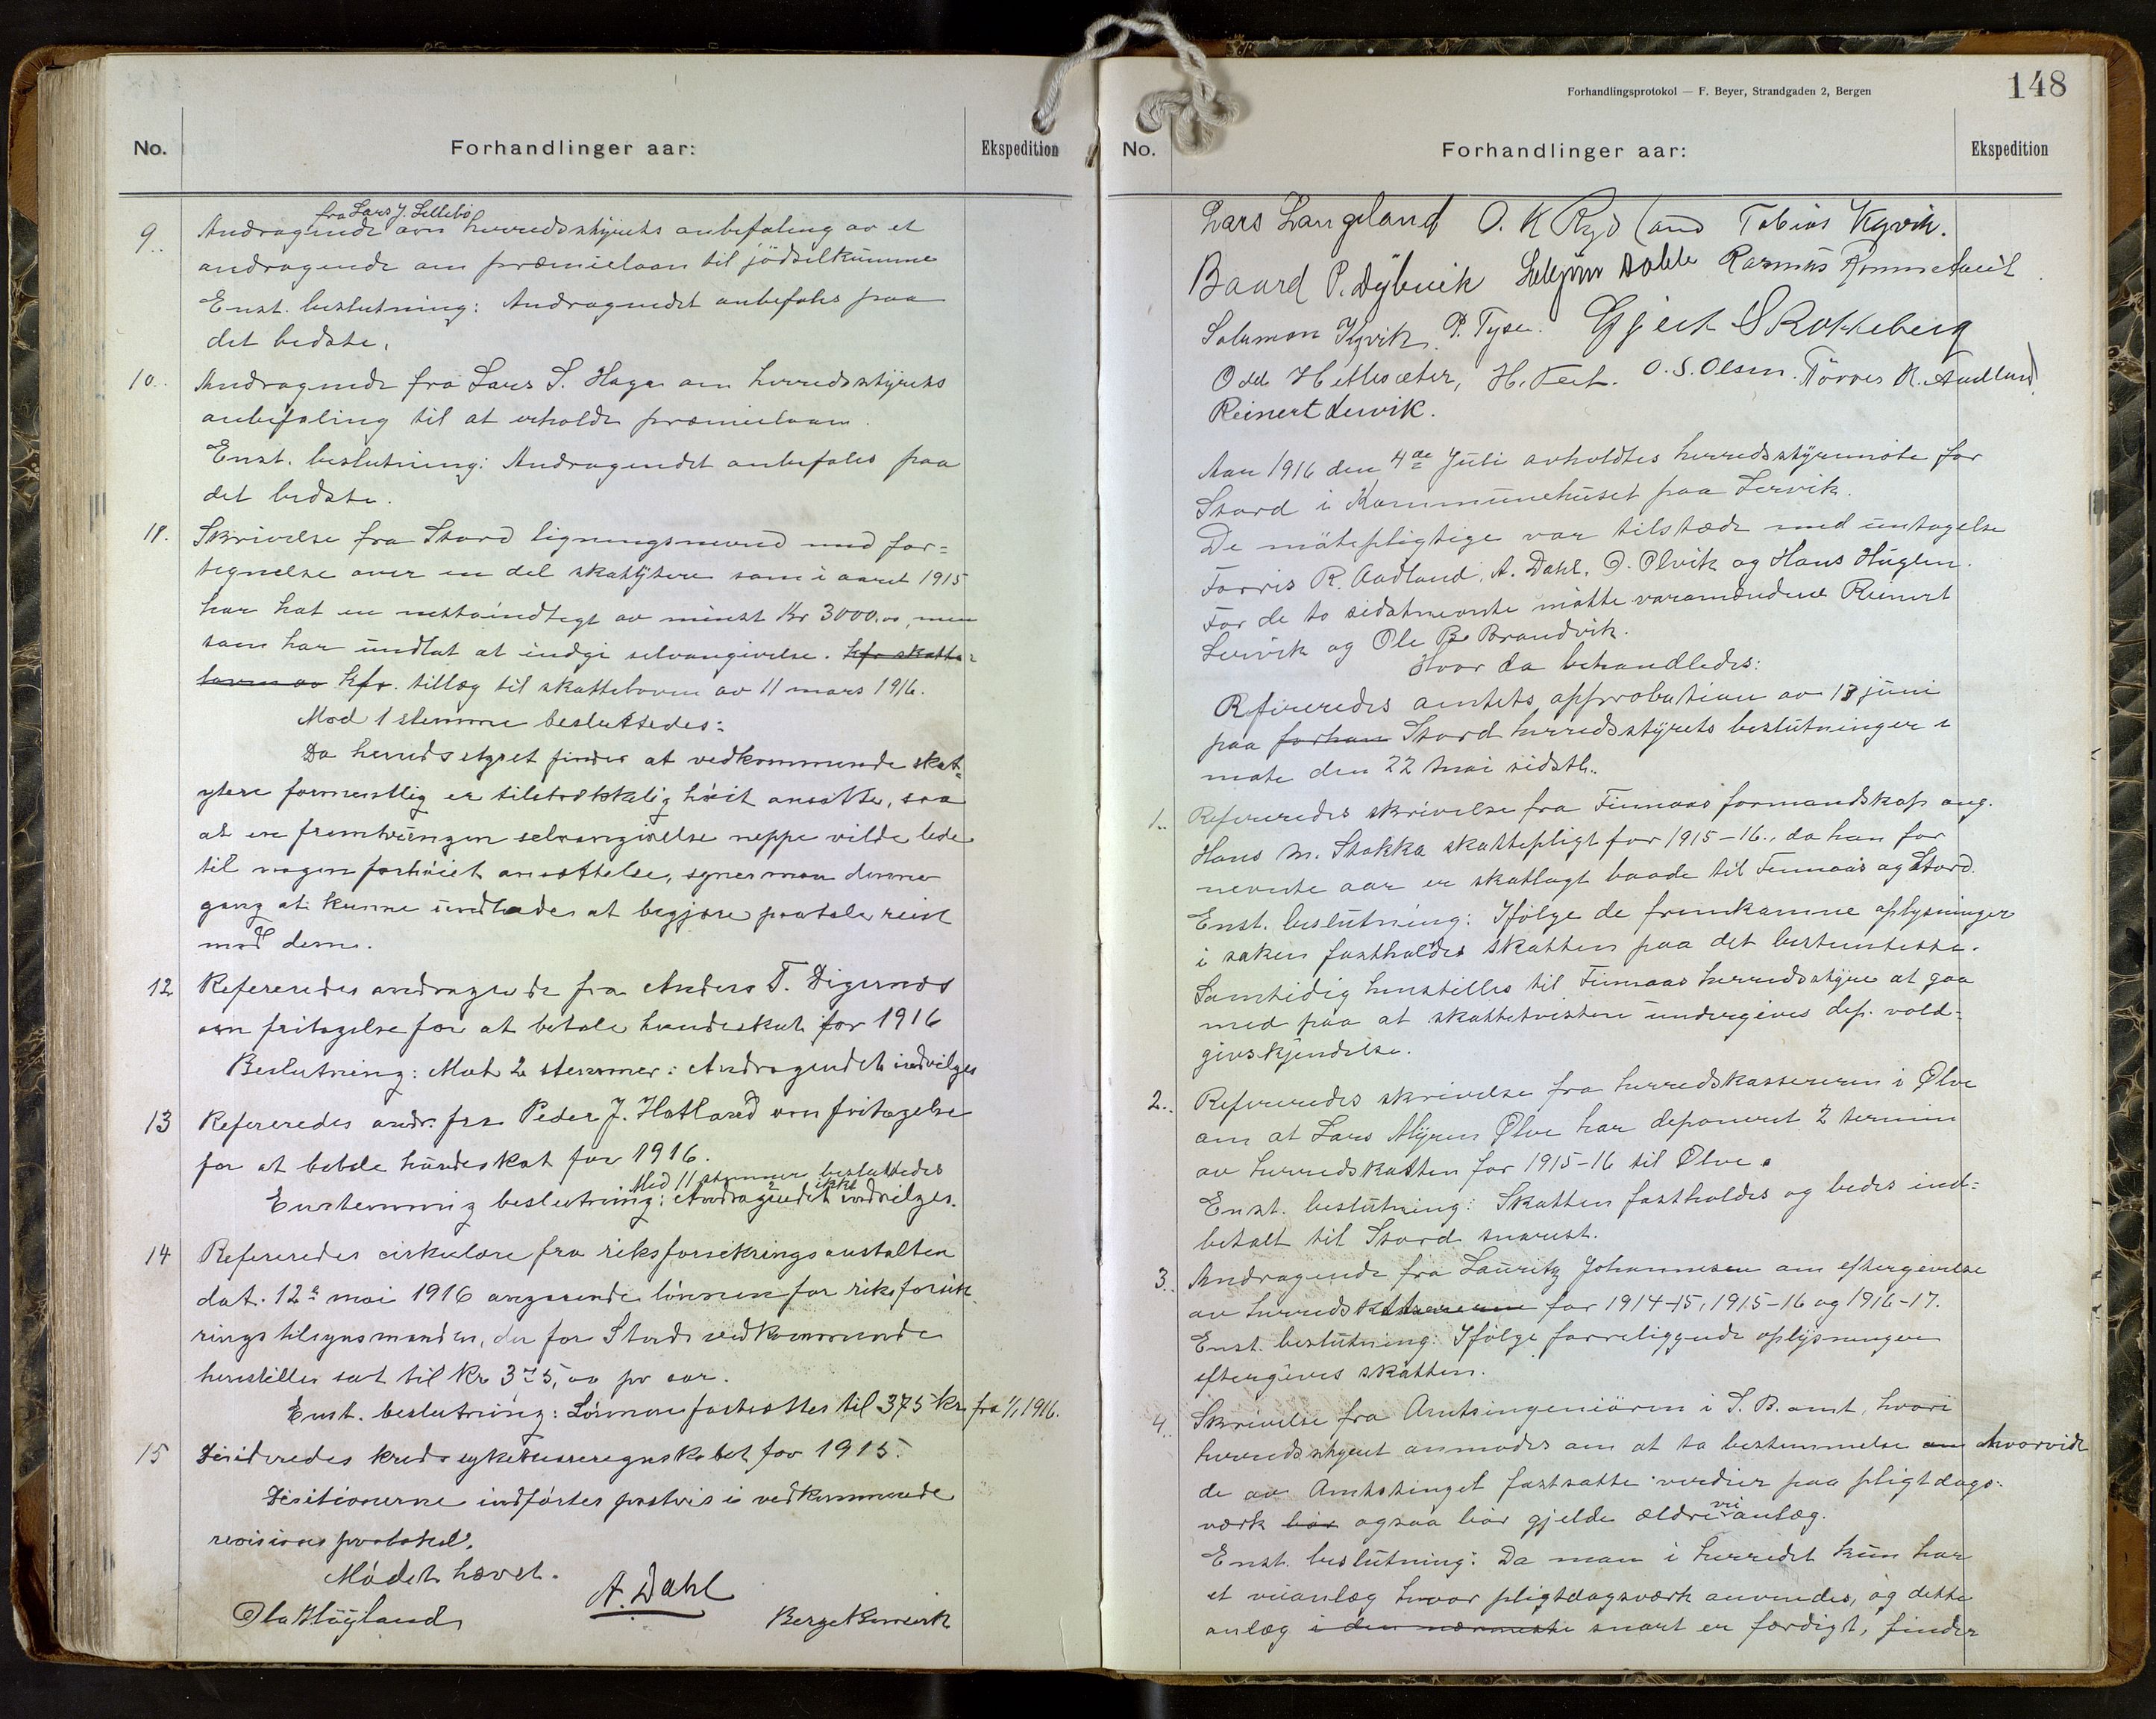 No. Forhandlinger aar: Ekspedition
fra Lars J. Lillebö
9.. Andragende om herredsstyrets anbefaling av et
andragende om præmielaan til jödselkumme
Enst. beslutning: Andragendet anbefales paa
det bedste.
10.. Andragende fra Lars S. Haga om herredsstyrets
anbefaling til at erholde præmielaan.
Enst. beslutning: Andragendet anbefales paa
det bedste.
11. Skrivelse fra Stord ligningsnevnd med for=
tegnelse over en del skatytere som i aaret 1915
har hat en nettoindtegt av minst Kr 3000.00, men
som har undlat at indgi selvangivelse. kfr skatte=
loven av kfr. tillæg til skatteloven av 11 mars 1916.
Mod 1 stemme besluttedes:
Da herredsstyret finder at vedkommende skat=
ytere formentlig er tilstrækkelig höit ansatte, saa
at en fremtvungen selvangivelse neppe vilde lede
til nogen forhöiet ansættelse, synes man denne
gang at kunne undlade at begjære paatale reist
mod dem.
12 Refereredes andragende fra Anders T. Digernes
om fritagelse for at betale hundeskat for 1916
Beslutning: Mot 2 stemmer: Andragendet indvilges
13 Refereredes andr. fra Peder J. Hatland om fritagelse
for at betale hundeskat for 1916.
Med 11 stemmer besluttedes
Enstemmig beslutning: Andragendet ikke indvilges.
14 Refereredes cirkulære fra riksforsikringsanstalten
dat. 12te mai 1916 angaaende lönnen for riksforsik-
ringstilsynsmanden, der for Stords vedkommende
henstilles sat til Kr 375,00 pr aar.
Enst. beslutning: Lönnen fastsættes til 375 kr fra 1/1 1916.
15 Desideredes kredssykekasseregnskabet for 1915.
Desitionerne indförtes postvis i vedkommende
revisions protokol.
Mödet hævet.
A. Dahl
Ola Höyland
Forhandlingsprotokol — F. Beyer, Strandgaden 2, Bergen
148
No. Forhandlinger aar: Ekspedition
Lars Langeland O. K Rydland Tobias Kyvik.
Baard P. Dybvik Rasmus Rommetveit
Salamon Kyvik P. Tyse. Gjert S Rokkeberg
Odd Hetlesæter, H. Teit. O. S. Olsen. Törres R. Audland
Reinert Lervik.
Aar 1916 den 4de Juli avholdtes herredsstyremöte for
Stord i Kommunehuset paa Lervik.
De mötepligtige var tilstæde med untagelse
Torris R. Aadland, A. Dahl, O. Olvik og Hans Huglen.
For de to sidstnevnte mötte varamændene Reinert
Lervik og Ole B. Brandvik.
Hvor da behandledes:
Refereredes amtets approbation av 13 juni
paa forhan Stord herredsstyrets beslutninger i
möte den 22 mai sidstl..
1.. Refereredes skrivelse fra Finnaas formandskap ang.
Hans M. Stokka skattepligt for 1915-16., da han for
nevnte aar er skatlagt baade til Finnaas og Stord.
Enst. beslutning: Ifölge de fremkomne oplysninger
i saken fastholdes skatten paa det bestemteste.
Samtidig henstilles til Finnaas herredsstyre at gaa
med paa at skattetvisten undergives dep. vold=
givskjendelse.
2.. Refereredes skrivelse fra herredskassereren i Ølve
om at Lars Myren Ølve har deponeret 2 termin
av herredskatten for 1915-16 til Ølve.
Enst. beslutning: Skatten fastholdes og bedes ind=
betalt til Stord snarest.
3.. Andragende fra Lauritz Johannesen om eftergivelse
av herredsskattaren for 1914-15, 1915-16 og 1916-17.
Enst. beslutning: Ifölge forreliggende oplysninger
eftergives skatten.
4.. Skrivelse fra Amtsingeniören i S. B. amt, hvori
herredsstyret anmodes om at ta bestemmelse om hvorvidt
de av Amtstinget fastsatte verdier paa pligtdags=
verk bör ogsaa bör gjelde ældre veianlæg.
Enst. beslutning: Da man i herredet kun har
et veianlæg hvor pligtdagsverk anvendes, og dette
anlæg i den nærmeste snart er færdigt, finder